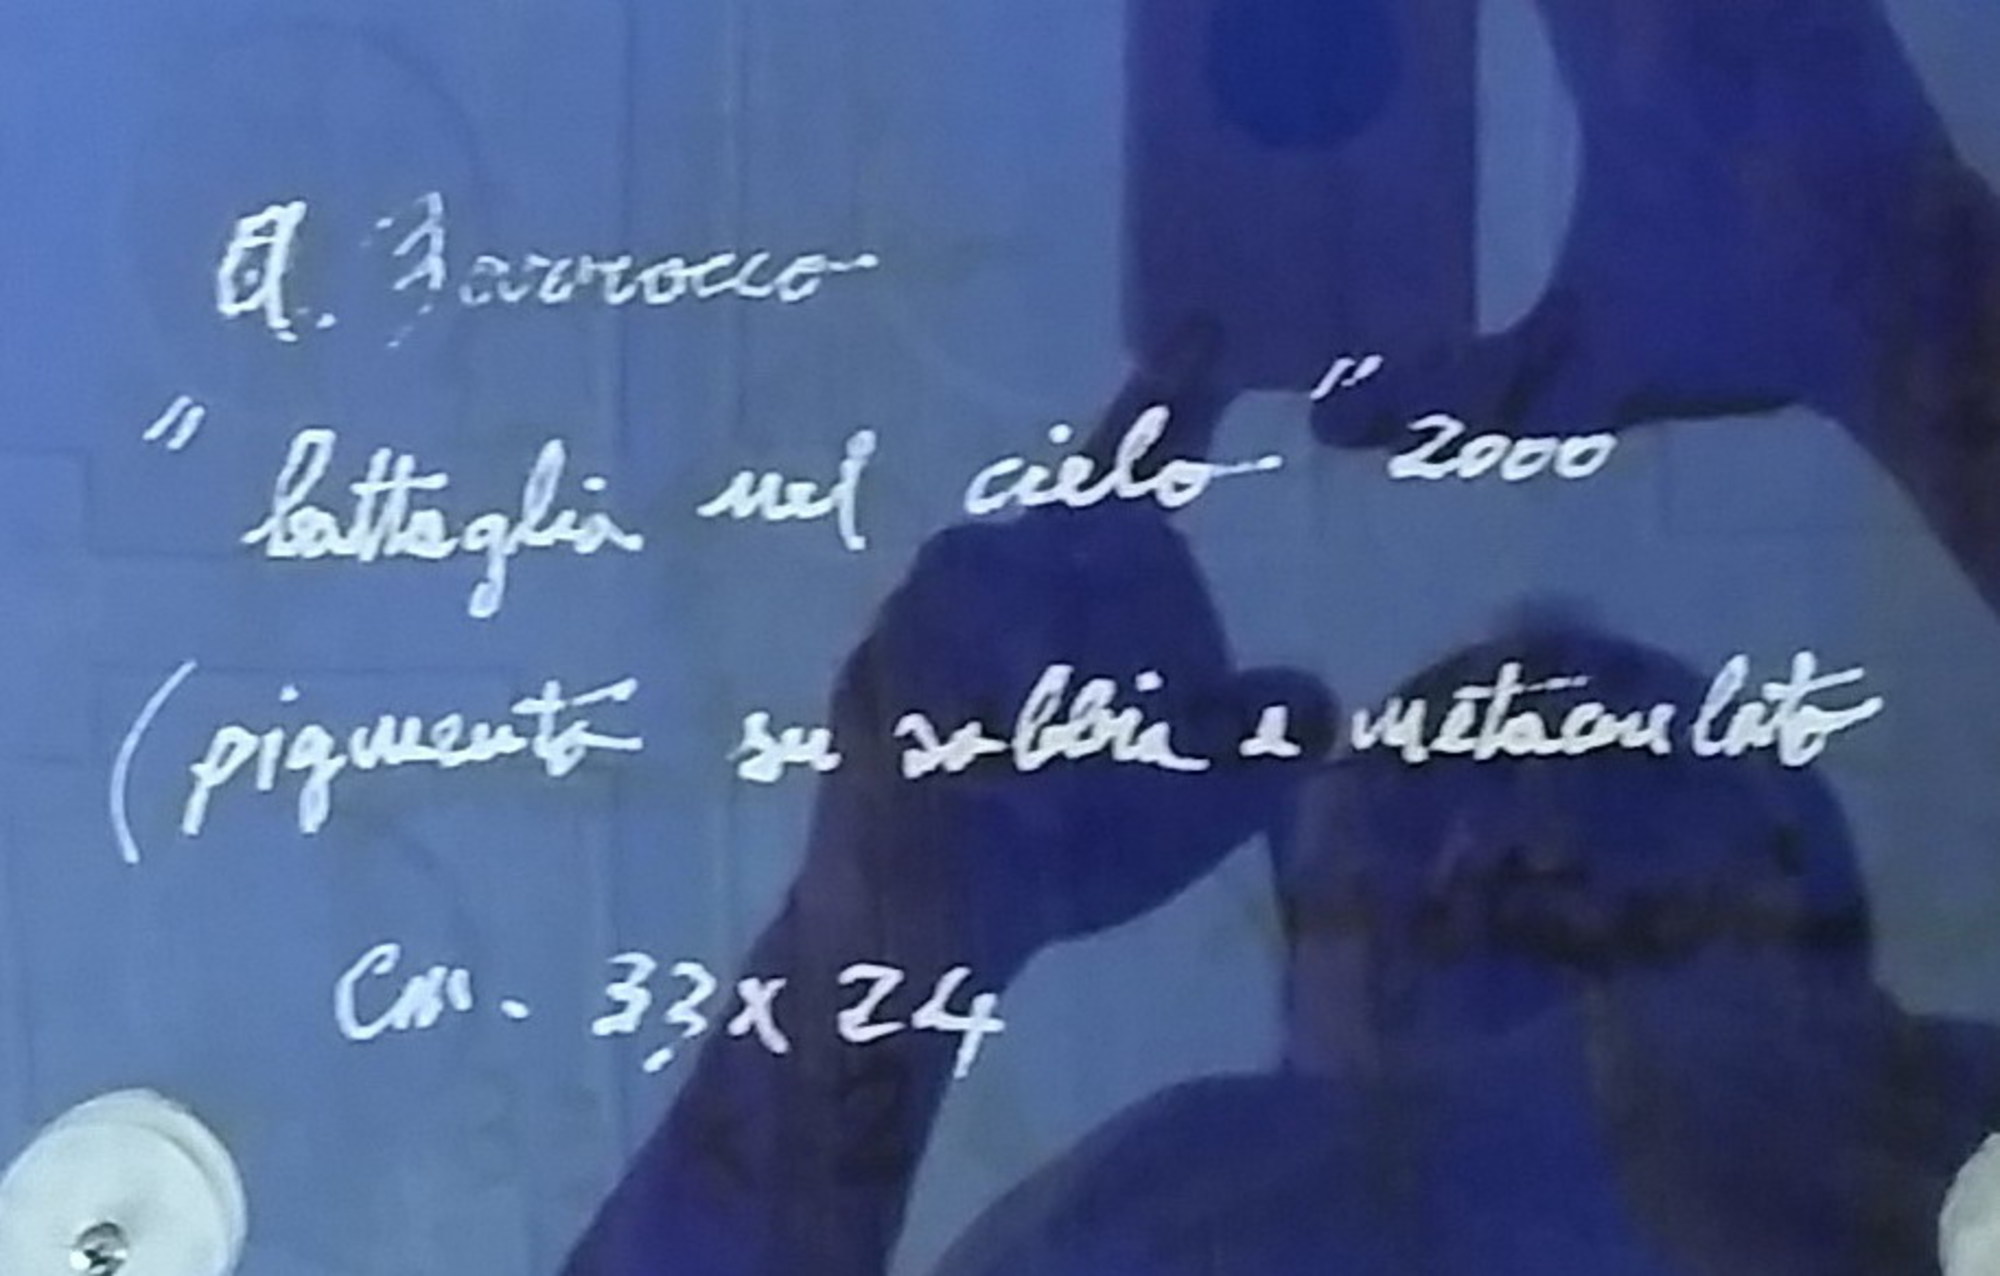 "battaglia nel cielo" 2000
(pigmento su sabbia e metacrilato
cm. 33 x 24